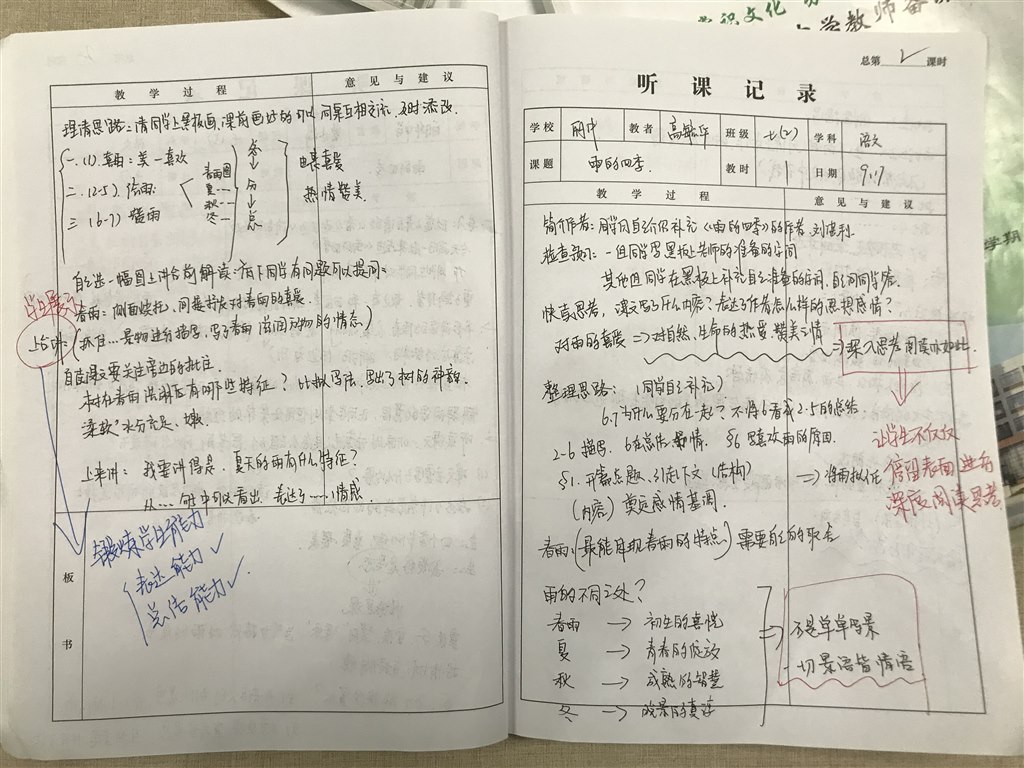 教学过程
意见与建议
理清思路：请同学上黑板画，课前画过的可以同桌互相交流、及时添改。
一.(1).喜雨：美—喜欢
二.(2-5).绘雨：
三.(6-7)
春雨图
夏…
秋…
冬…
冬
分
总
由喜爱
热情赞美
自己选一幅图上讲台前解读：有下同学有问题可以提问：
学生展示
春雨：侧面烘托，间接抒发对春雨的喜爱。
上台讲：(抓住…景物进行描写，写了春雨滋润万物的情态。)
自读课文要关注旁边的批注。
树在春雨滋润后有哪些特征？比拟写法，写出了树的神韵。
柔软：水分充足、嫩。
上来讲：我要讲得是：夏天的雨有什么特征？
从……句中可以看出，表达了……情感。
锻炼学生能力
表述能力✓
总结能力✓
板
书
识文化
学教师备
学期
总第 2 课时
听课记录
学校
教者
班级 七(2)
学科 语文
课题 雨的四季
教时
日期 9.17
教学过程
意见与建议
简介作者：同学自己介绍补充《雨的四季》的作者刘湛秋。
检查预习：一组同学写黑板上老师的准备的字词
其他组同学在黑板上补充自己准备的字词，自己问同学答。
快速思考，课文写了什么内容？表达了作者怎么样的思想感情？
对雨的喜爱 => 对自然、生命的热爱、赞美之情
=> 深入思考 阅读
整理思路：(同学自己补充)
6.7为什么要分在一起？不将6看成2-5的总结
2-6描写 6在总结，最情. §6 喜欢雨的原因.
让学生不仅仅
§1. 开篇点题、引起下文(结构)
=> 将雨拟人化
停留表面，进行
(内容)奠定感情基调.
深度阅读思考.
春雨：(最能体现春雨的特点)需要自己的体会
雨的不同之处？
春雨 → 初生的喜悦
夏 → 青春的绽放
秋 → 成熟的智慧
冬 →
=> 不是单单写景
一切景语皆情语